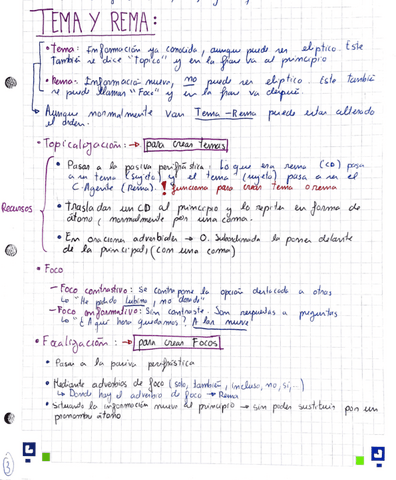 TEMA Y REMA:
• Tema: Información ya conocida, aunque puede ser elíptico. Este
también se dice "Tópico" y en la frase va al principio
• Rema: Información nueva, no puede ser elíptico. Esto también
se puede llamar "Foco" y en la frase va después.
Aunque normalmente van Tema-Rema puede estar alterado
el orden.
• Topicalización: → para crear temas
Recursos
• Pasar a la pasiva perifrástica: Lo que era rema (CD) pasa
a ser tema (sujeto) y el tema (sujeto) pasa a ser el
C.Agente (Rema). ! funciona para crear tema o rema
• Trasladar un CD al principio y lo repites en forma de
átono, normalmente por una coma.
• En oraciones adverbiales → O. Subordinada la ponen delante
de la principal (con una coma)
• Foco
– Foco contrastivo: Se contrapone la opción destacada a otras
↳ "He pedido lubina, no dorada"
– Foco informativo: Sin contraste. Son respuestas a preguntas
↳ "¿A qué hora quedamos? A las nueve
• Focalización: → para crear Focos
• Pasar a la pasiva perifrástica
• Mediante adverbios de foco (solo, también, incluso, no, sí, ...)
↳ Donde hay el adverbio de foco → Rema
• Situando la información nueva al principio → sin poder sustituir por un
pronombre átono
3